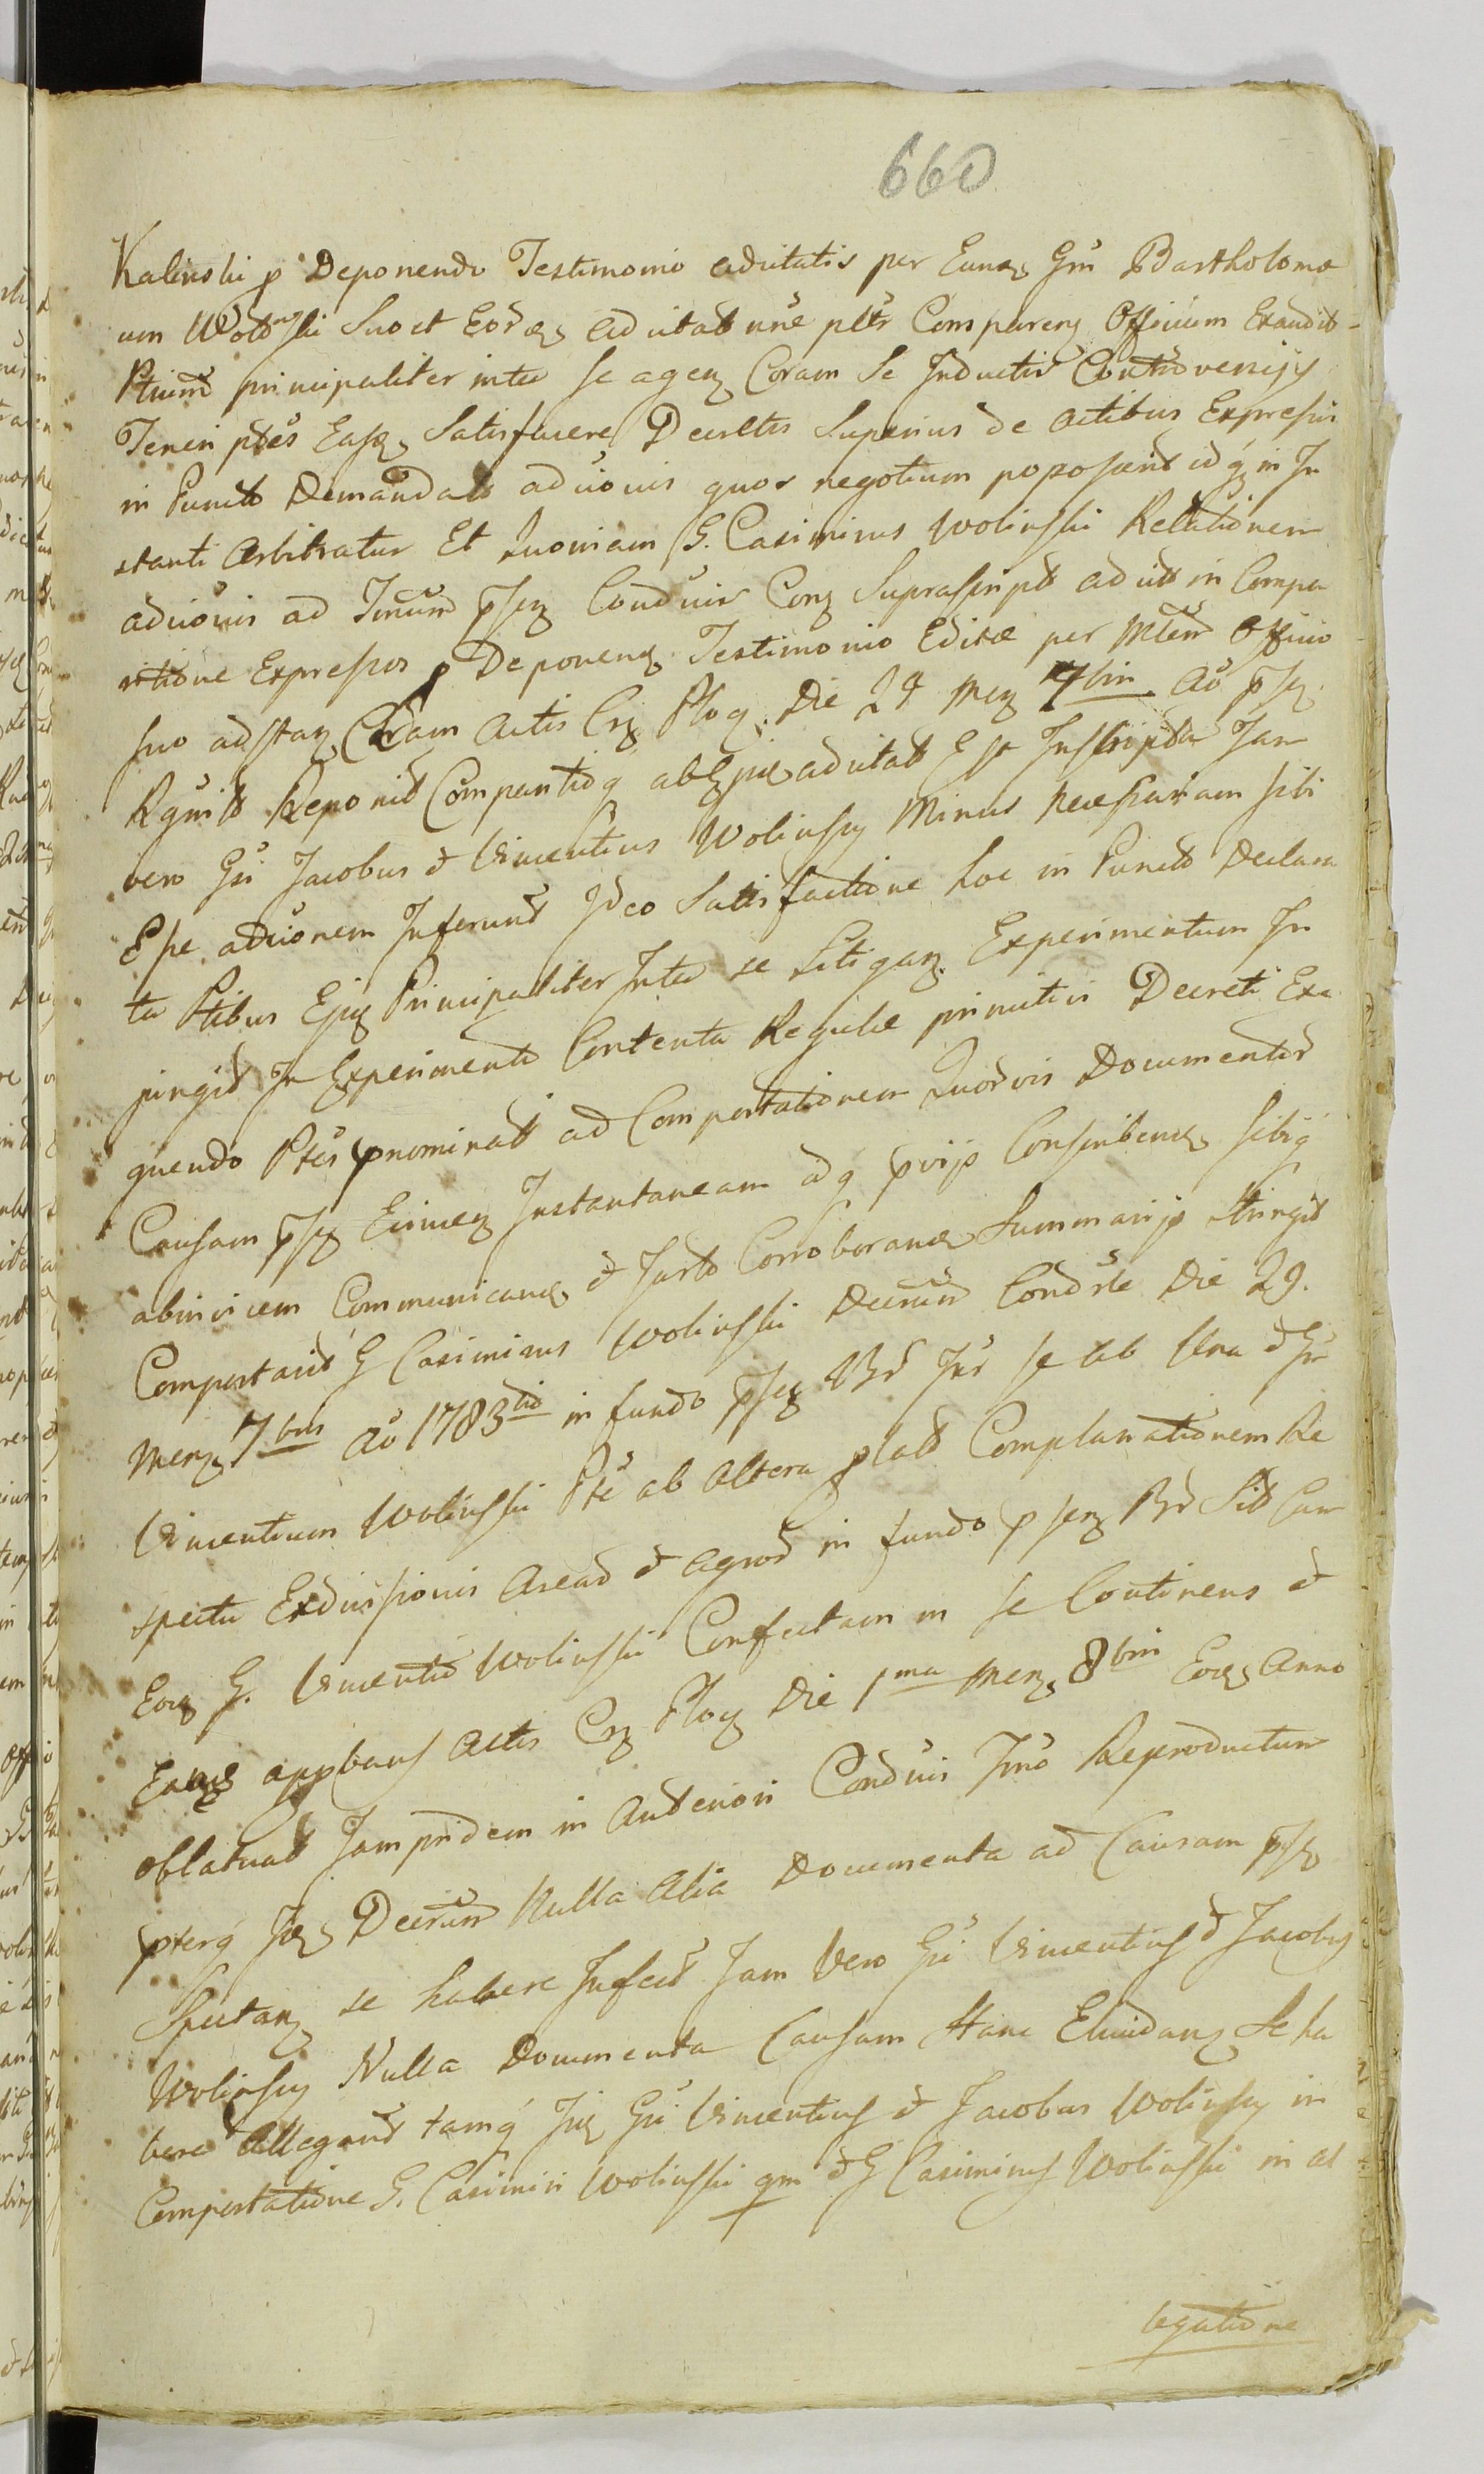 660
Kalinski p Deponendo Testimonio adcitatis per Eunq Gm Bartholomæ
um Wolinski Suo et Eorq adcitat nre pltr Comparenz Officium Exaudit
Ptium principaliter inter se agenz Coram Se Inductis Controversijs
Teneri ptes Easq Satisfacere Decretis Superius de actibus Expressis
in Puncto Demandato adcionis quor negotium poposcerit idq in In
stanti Arbitratur Et Quoniam G. Casimirus Wolinski Relationem
adcionis ad Tnum psez Condnis Conz Suprascript adcitt in Compa
ritione Expressos p Deponenz Testimonio Editæ per Mtem Officio
suo adstanz Coram Actis Crz Plocz Die 27 Menz 7bris Ao psz
Rquit Reponit Comparitioq ab Esse adcitat Est Inscripta Jam
vero Gsi Jacobus et Vincentius Wolinscy Minus necessariam sibi
Esse adcionem Inferunt Ideo Satisfactione hoc in Puncto Declara
ta Ptibus Ejsz Principaliter Inter se Litiganz Experimentum In
jungit In Experimento Contenta Regulæ primitivi Decreti Exe
quendo Ptes pnominatt ad Comportationem Quorvis Documentor
Causam psz Concernenz Instantaneam adq pvijs Conscribenz sibiq
abinvicem Communicanz et Jurto Corroboranz Summarijs stringit
Comportavit G Casimirus Wolinski Decrum Condrle Die 29.
Menz 7bris Ao 1783tio in fundo psz Br Inr se ab Una et Gm
Vincentium Wolinski Pte ab Altera plat Complanationem Re
spectu Exdivisionis Arear et Agror in fundo psenz Br Sit Cum
Eoq G. Vincentio Wolinski Confectam in se Continens et
Eanq appbans Actis Crz Plocz Die 1ma Menz 8bris Eoq Anno
oblatvat Jampridem in Anteriori Condnis Tno Reproductum
pterq Idz Decrum Nulla Alia Documenta ad Causam psz
Spectanz se habere Infert Jam Vero Gsi Vincentius et Jacobus
Wolinscy Nulla Documenta Causam Hanc Elucidanz Se ha
bere Allegant tamq Iiz Gsi Vincentius et Jacobus Wolinscy in
Comportatione G. Casimiri Wolinski qm et G Casimirus Wolinski in al
legatione